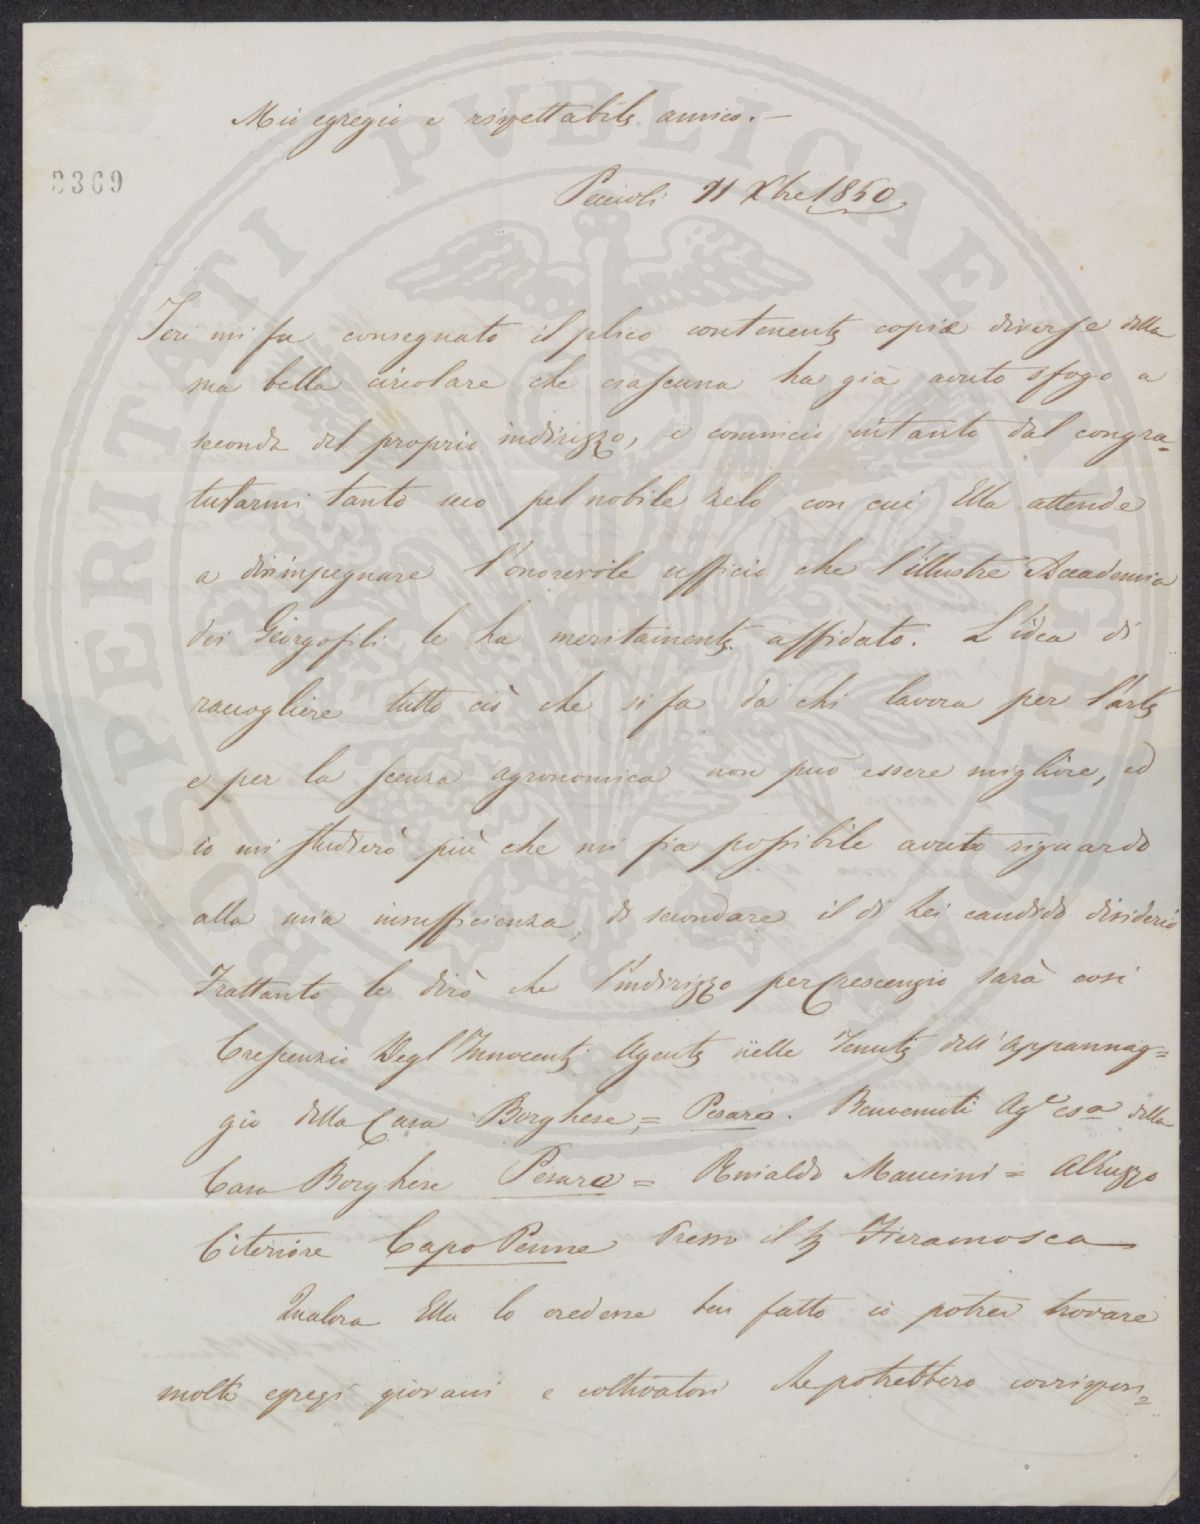 Mio egregio e rispettabile amico. —
3369
Peccioli 21 Xbre 1850.
Ieri mi fu consegnato il plico contenente copie diverse della
sua bella circolare che ciascuna ha già avuto sfogo a
seconda del proprio indirizzo, e comincio intanto dal congra=
tularmi tanto seco pel nobile zelo con cui Ella attende
a disimpegnare l'onorevole ufficio che l'illustre Accademia
dei Georgofili le ha meritamente affidato. L'idea di
raccogliere tutto ciò che si fa da chi lavora per l'arte
e per la scenza agronomica non può essere migliore, ed
io mi studierò più che mi sia possibile avuto riguardo
alla mia insufficienza, di secondare il di Lei candido disiderio
Frattanto le dirò che l'indirizzo per Crescenzio sarà così
Crescenzio Degl'Innocenti Agente nelle Tenute dell'Appannag=
gio della Casa Borghese = Pesaro. Benvenuti Ag.e della
Casa Borghese Pesaro = Rinaldo Mancini = Abruzzo
Citeriore Capo Penne Presso il Fieramosca
Qualora Ella lo credesse ben fatto io potrei trovare
molti egregi giovani e coltivatori che potrebbero corrispon=
PROSPERITATI PVBLICAE AVGENDAE